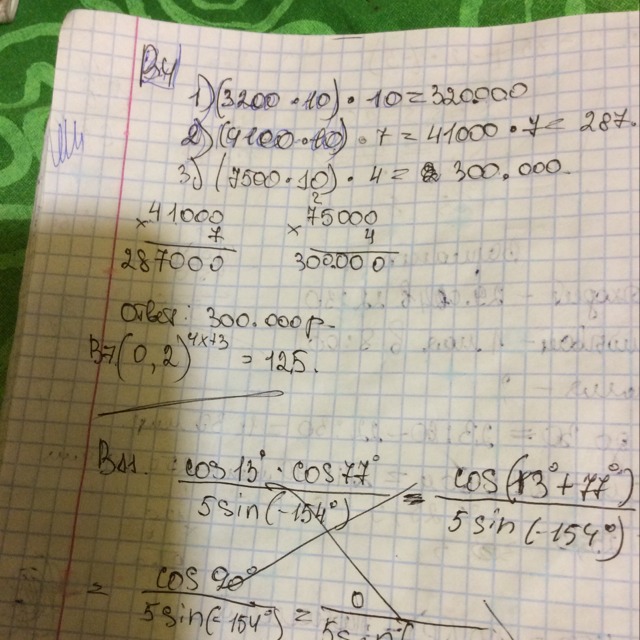 В4
1) (3200 · 10) · 10 = 320.000
2) (4100 · 10) · 7 = 41000 · 7 = 287.
3) (7500 · 10) · 4 = 300.000.
× 41000
7
287000
2
× 75000
4
300000
Ответ: 300.000р.
В7 (0,2)^4x+3 = 125.
В11. cos 13° · cos 77° / 5 sin(-154°) = cos(13° + 77°) / 5 sin(-154°)
= cos 90° / 5 sin(-154°) = 0 / 5 sin(